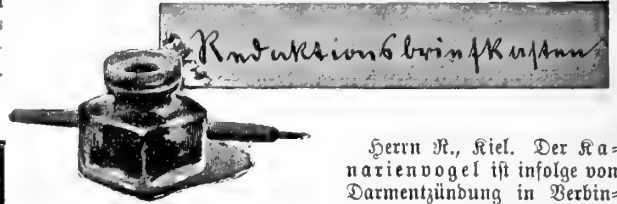 Redaktionsbriefkasten
Herrn R., Kiel. Der Ka=
narienvogel ist infolge von
Darmentzündung in Verbin=